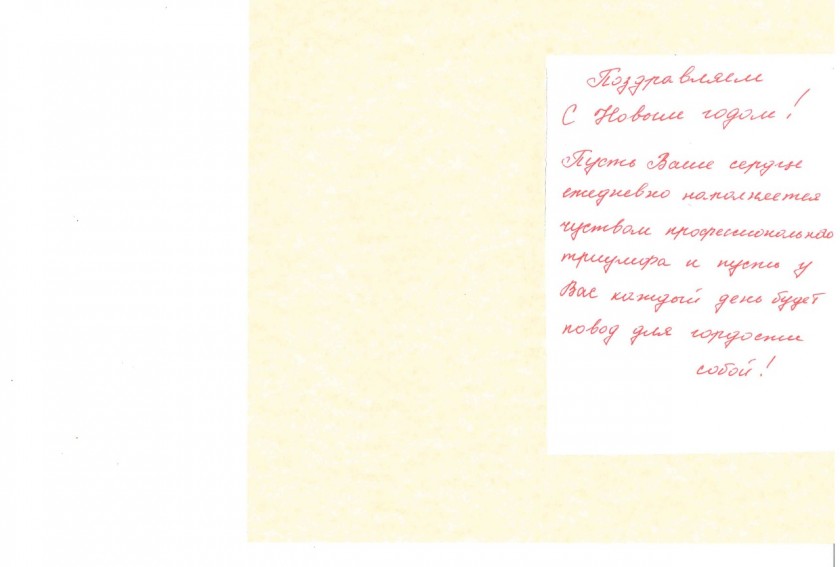 Поздравляем
С Новым годом!
Пусть Ваше сердце
ежедневно наполняется
чуством профессионального
триумфа и пусть у
Вас каждый день будет
повод для гордости
собой!